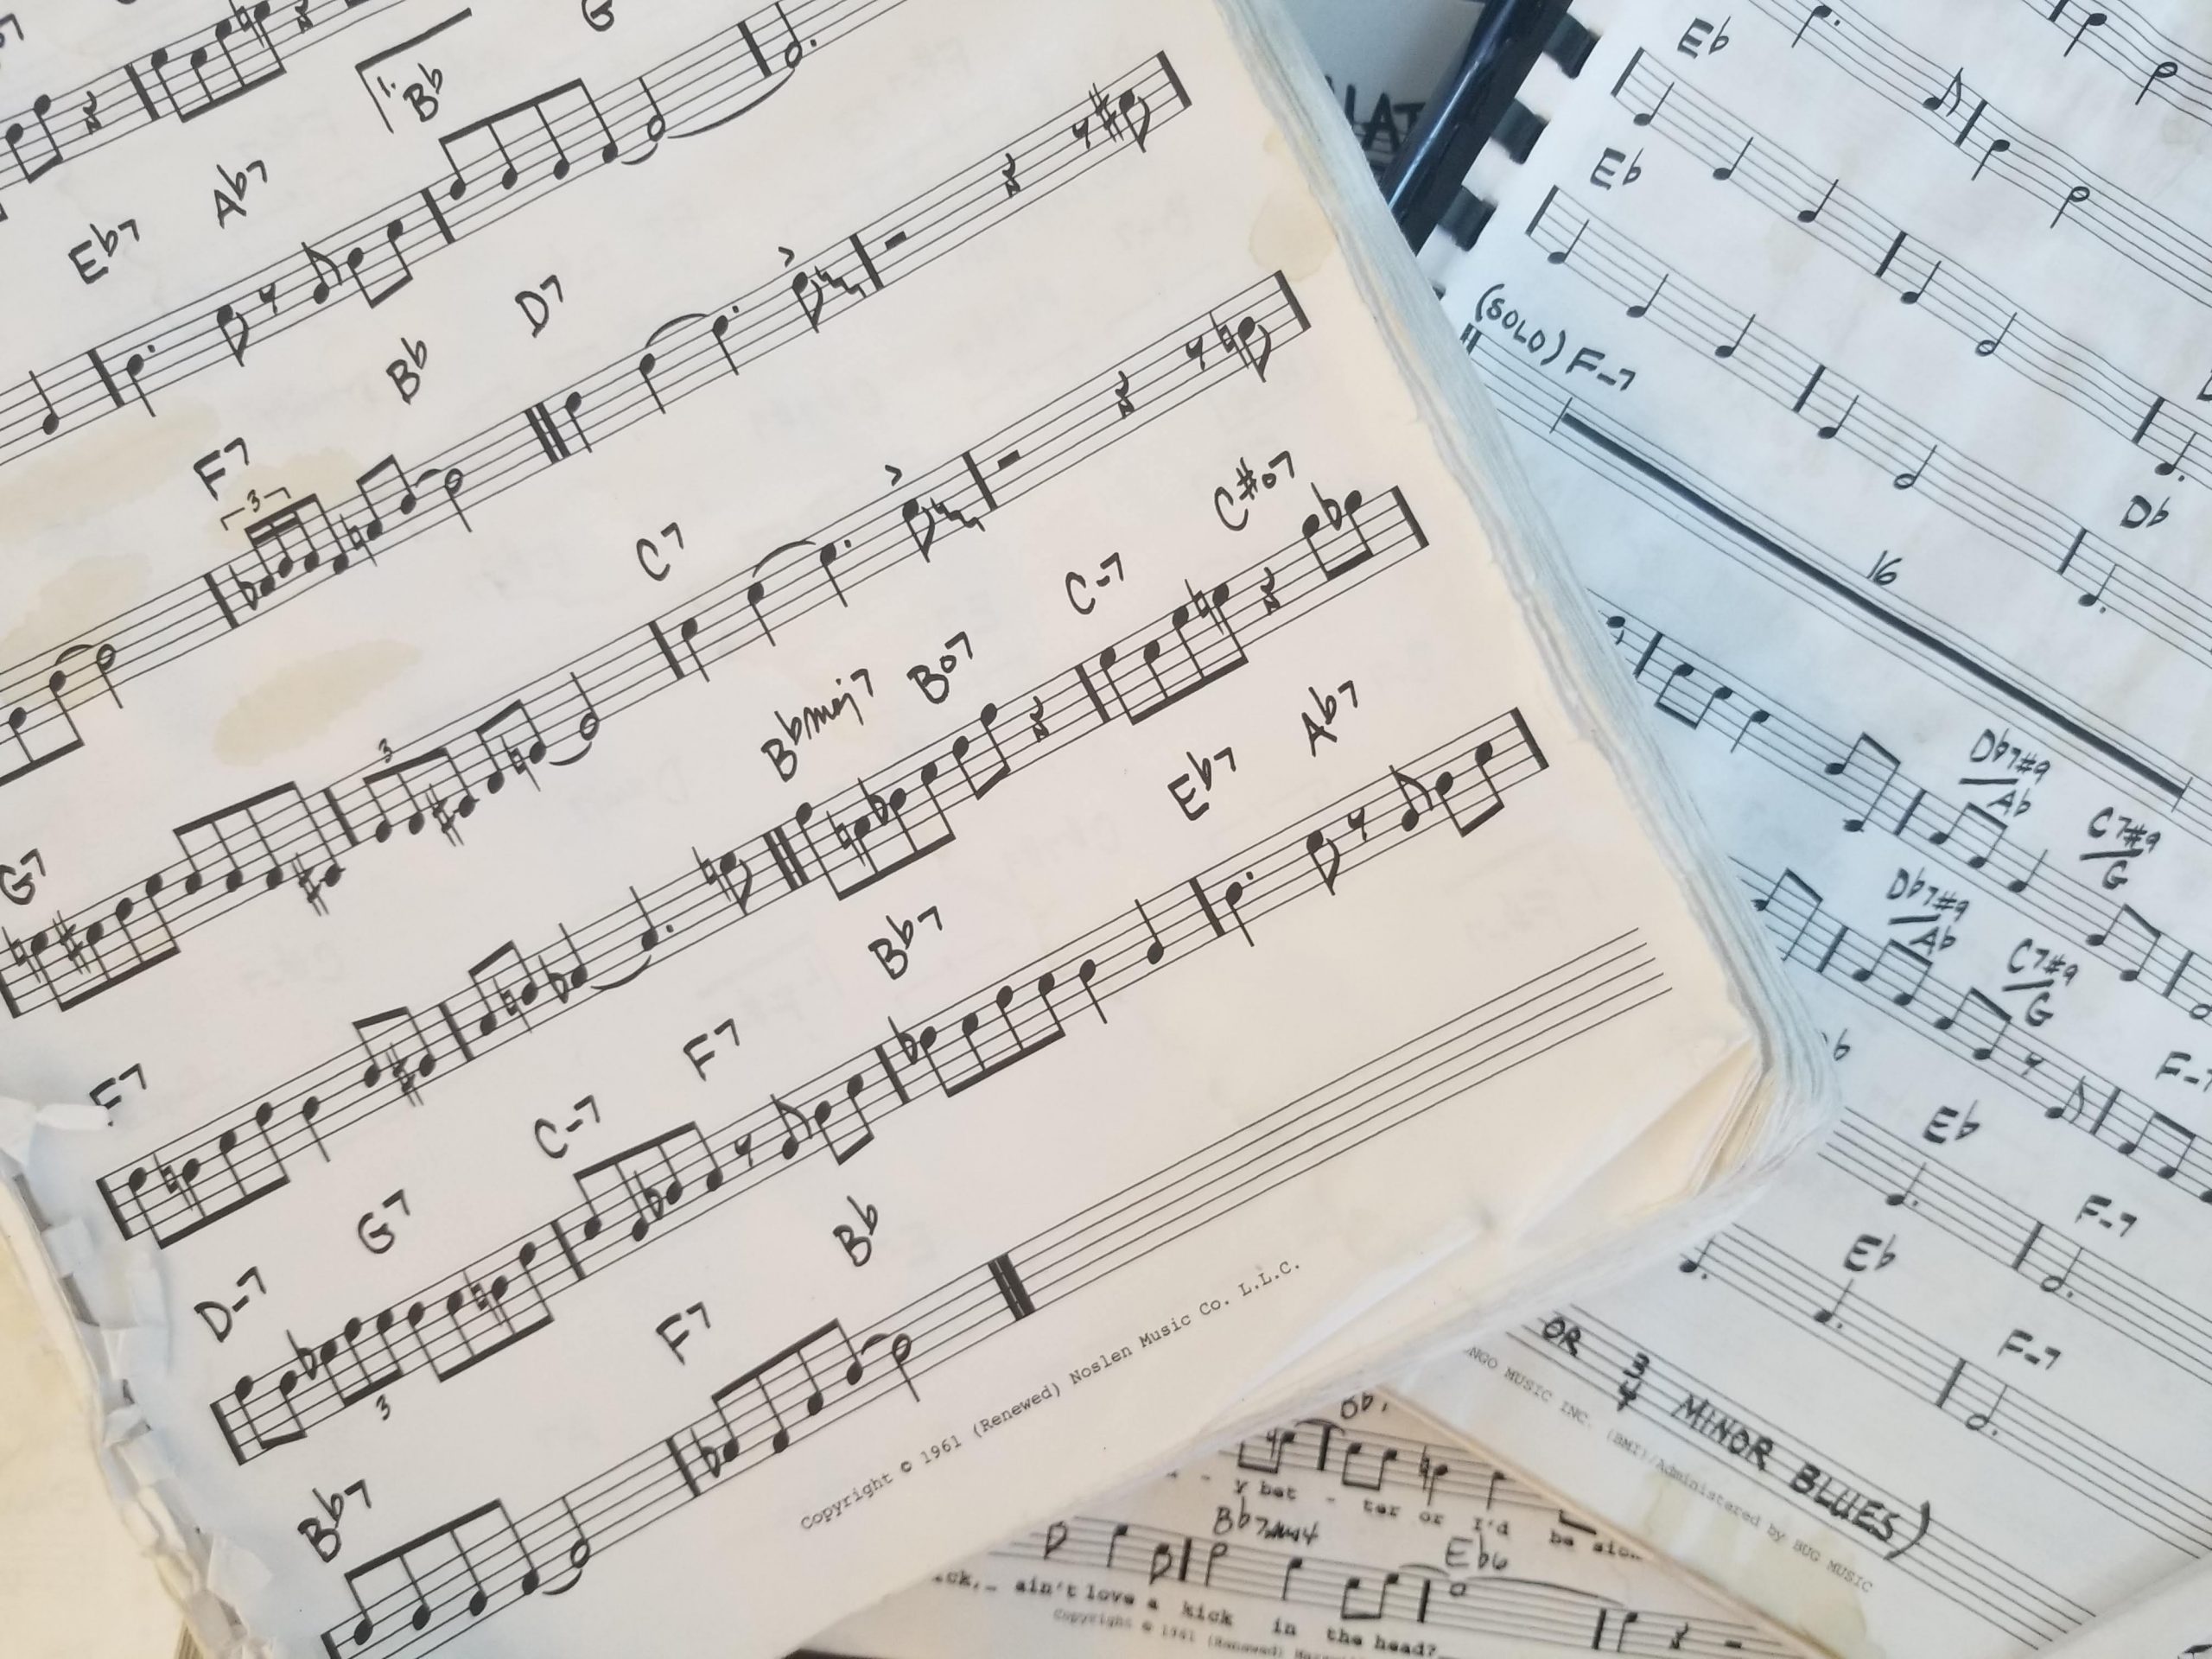 1. Bb
Eb7 Ab7
F7 Bb D7
3
G7 C7
3
F7 Bbmaj7 Bo7 C-7 C#o7
D-7 G7 C-7 F7 Bb7 Eb7 Ab7
3
Bb7 F7 Bb
Copyright © 1961 (Renewed) Noslen Music Co. L.L.C.
Eb
Eb
(SOLO) F-7
16
Db
Db7#9/Ab C7#9/G
Db7#9/Ab C7#9/G
Eb F-7
Eb F-7
OR 3/4 MINOR BLUES)
MUSIC INC. (BMI)/Administered by BUG MUSIC
y bet - ter or I'd be
Bb7sus4 Eb6
ain't love a kick in the head?
Copyright © 1961 (Renewed)